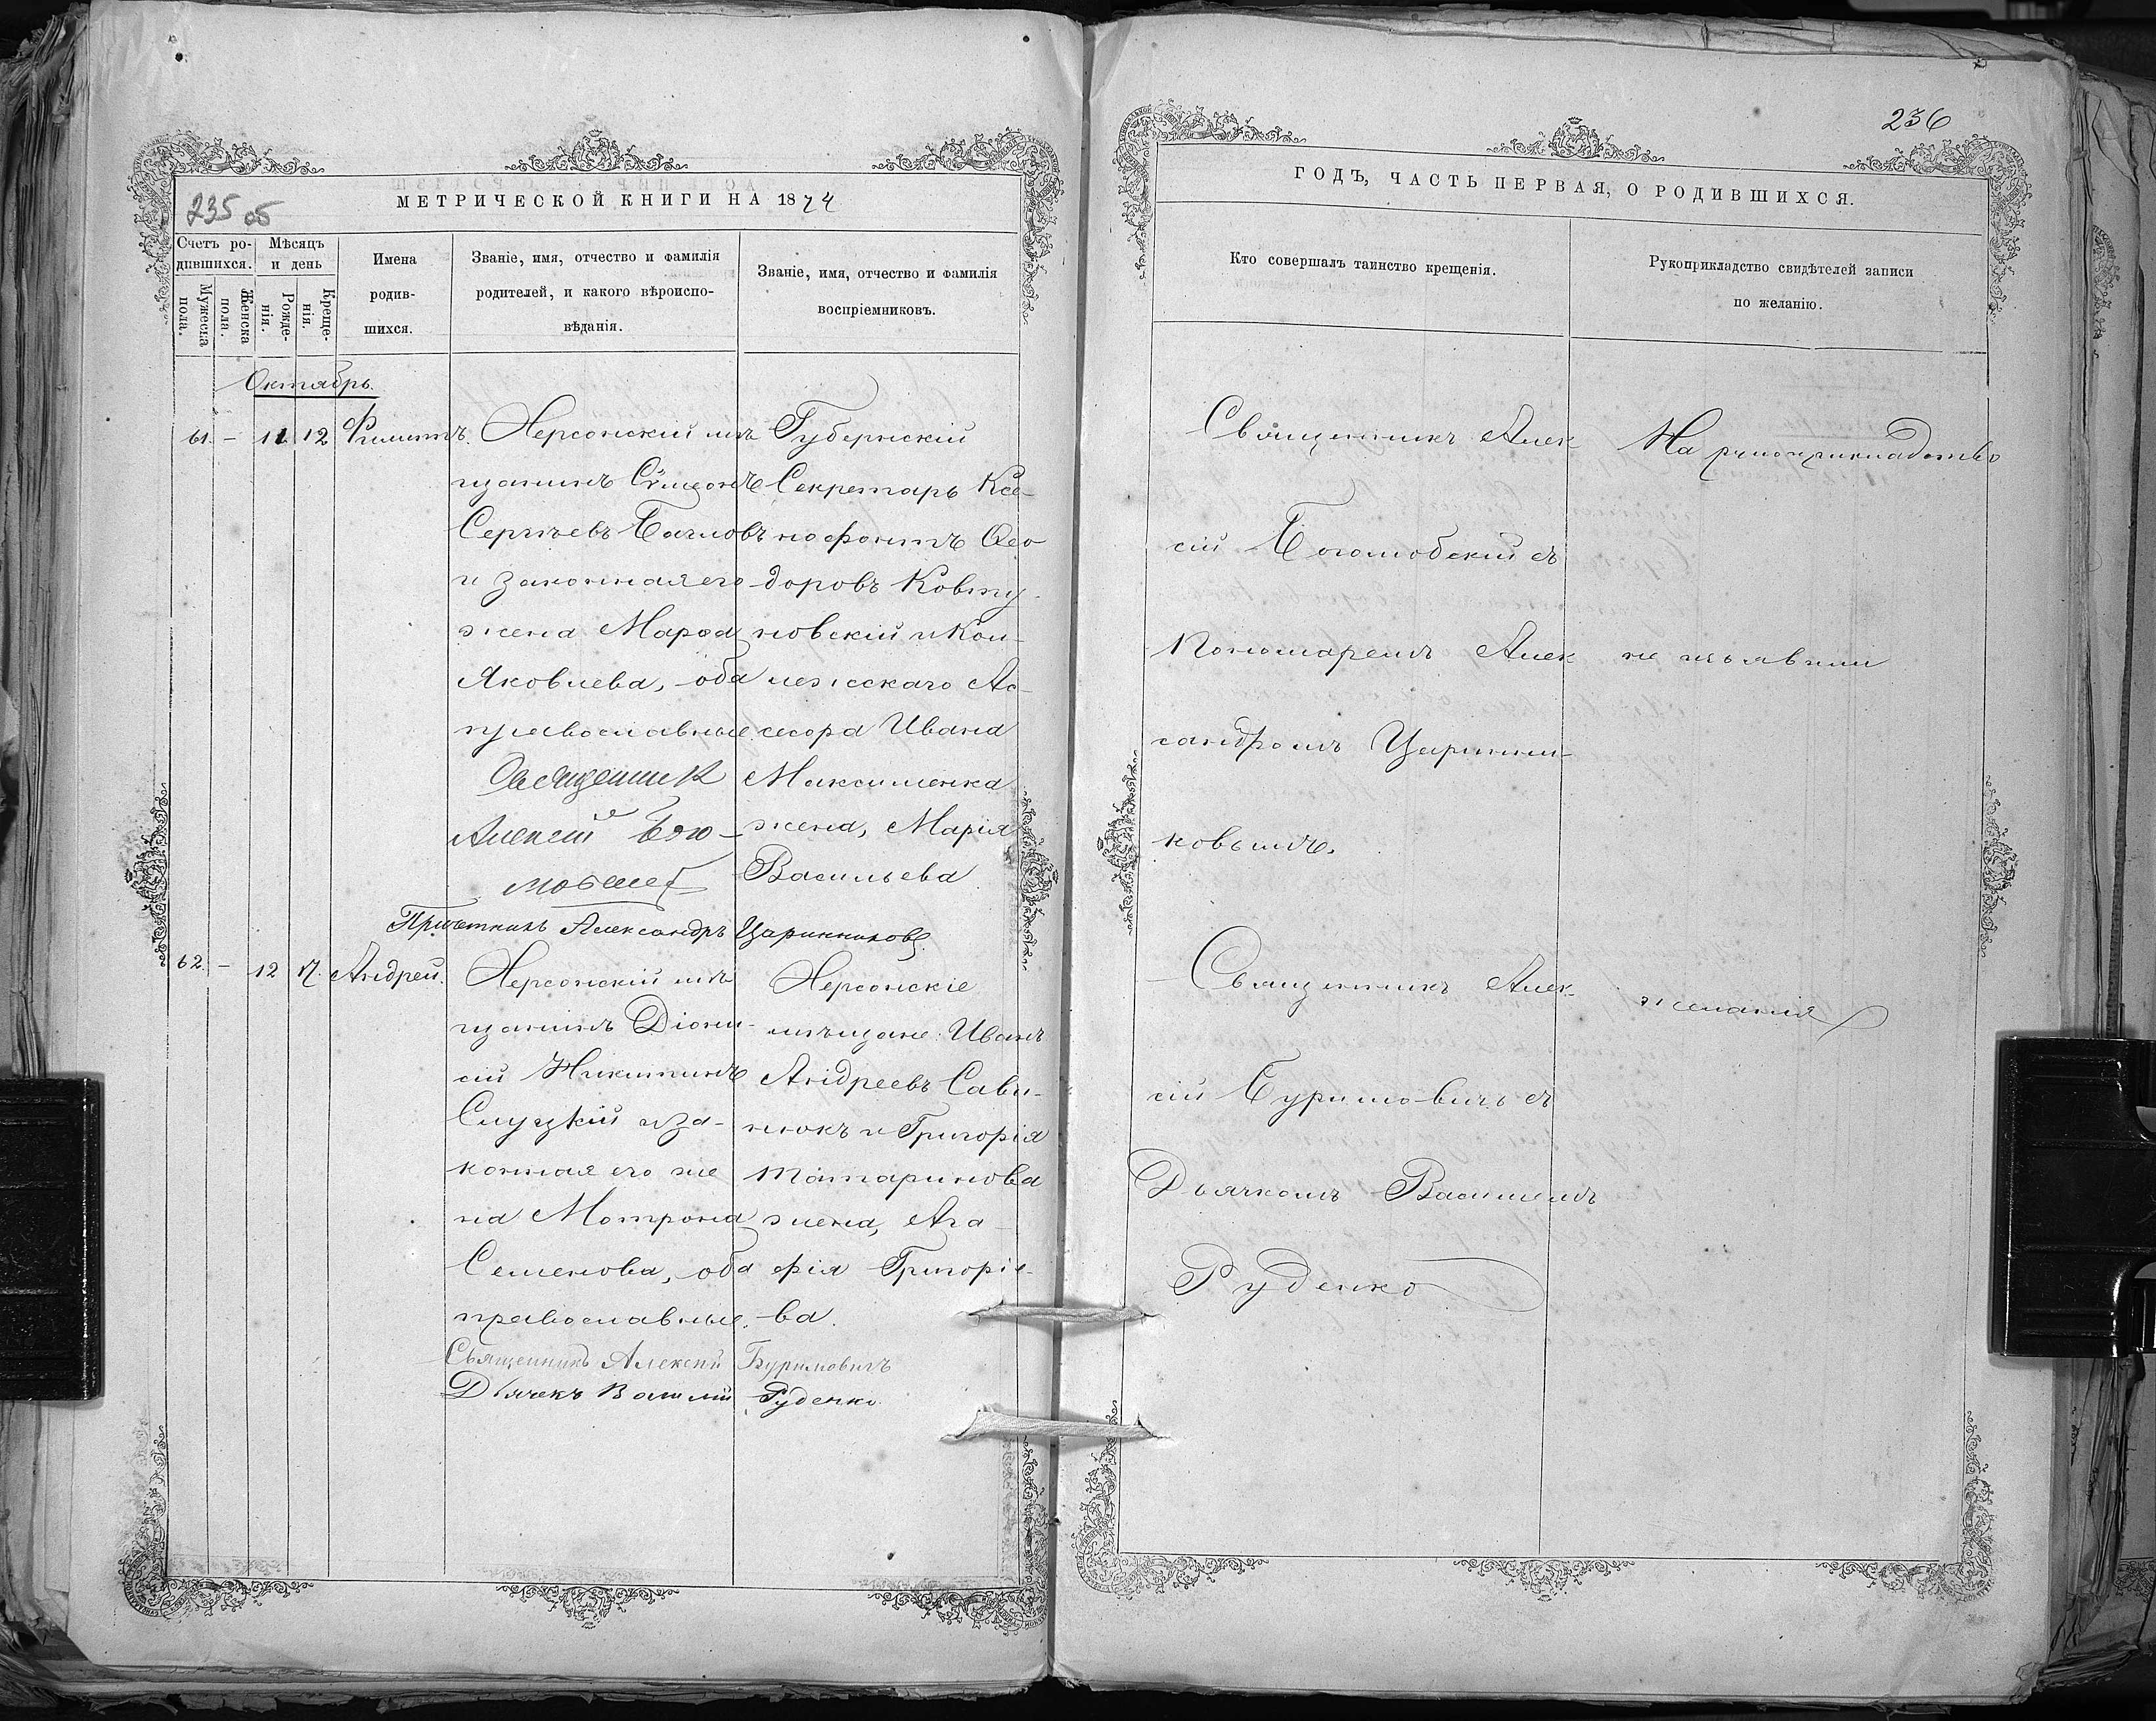 235 об
МЕТРИЧЕСКОЙ КНИГИ НА 1874
Счетъ ро-
дившихся.
Мужеска
пола.
Женска
пола.
Мѣсяцъ
и день
Рожде-
нія.
Креще-
нія.
Имена
родив-
шихся.
Званіе, имя, отчество и фамилія
родителей, и какого вѣроиспо-
вѣданія.
Званіе, имя, отчество и фамилія
воспріемниковъ.
Октябрь.
61. – 11 12 Филиппъ.
Херсонскій мѣ
щанинъ Сѷмеонъ
Сергѣевъ
и законная его
жена Марѳа
Яковлева, оба
православные.
Священник
Алексій Бого-
любский
Губернскій
Секретарь Ксе-
нофонтъ Ѳео
доровъ Ковту
новскій и Кол-
лежскаго Ас-
сесора Ивана
Максименка
жена, Марія
Васильева
Причетникъ Александръ Царинниковъ
62. – 12 17. Андрей.
Херсонскій мѣ
щанинъ Діони-
сій Никитинъ
Слуцкій и за-
конная его же
на Матрона
Семенова, оба
православные.
Херсонскіе
мѣщане: Иванъ
Андреевъ Сави-
нюкъ и Григорія
Татаринова
жена, Ага-
фія Григоріе-
ва.
Священникъ Алексій Буримовичъ
Дьячекъ Василій Руденко
236
ГОДЪ, ЧАСТЬ ПЕРВАЯ, О РОДИВШИХСЯ.
Кто совершалъ таинство крещенія.
Рукоприкладство свидѣтелей записи
по желанію.
Священникъ Алек
сій Боголюбскій съ
Пономаремъ Алек
сандромъ Царинни-
ковымъ.
Священникъ Алек-
сій Буримовичъ съ
Дьячкомъ Василіемъ
Руденко
На рукоприкладство
не изъявили
желанія